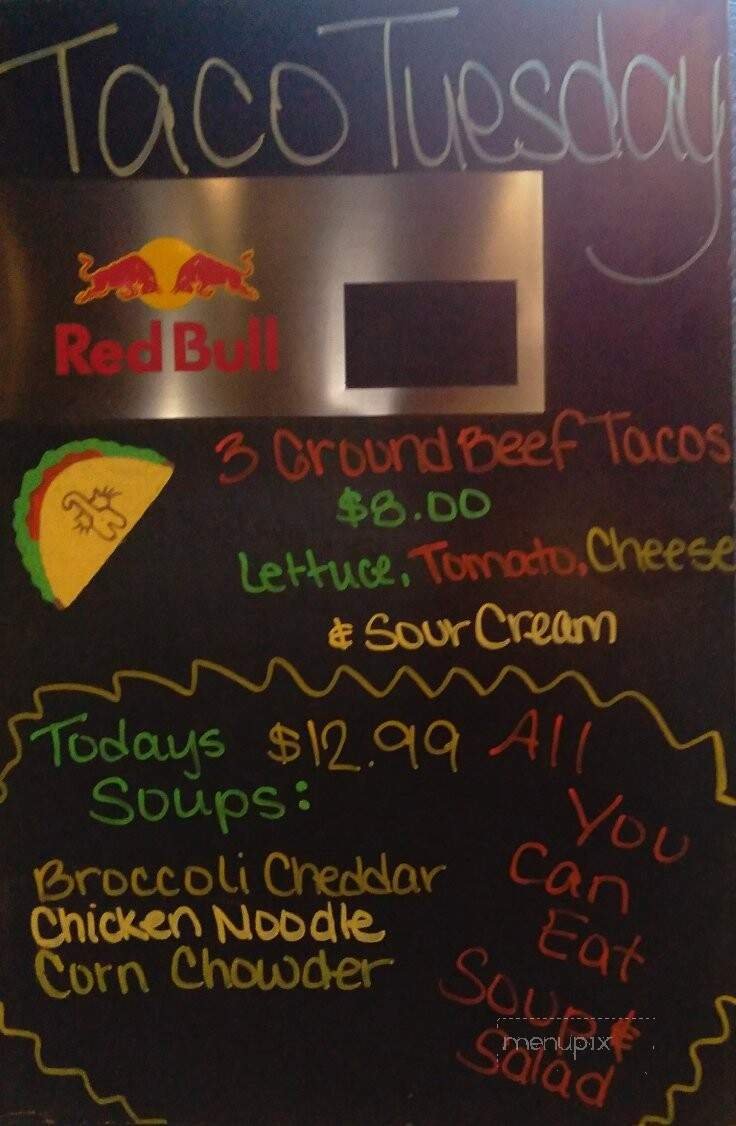 Taco Tuesday
Red Bull
3 Ground Beef Tacos
$8.00
Lettuce, Tomato, Cheese
& Sour Cream
Todays
Soups:
Broccoli Cheddar
Chicken Noodle
Corn Chowder
$12.99 All
You
Can
Eat
Soup &
Salad
menupix